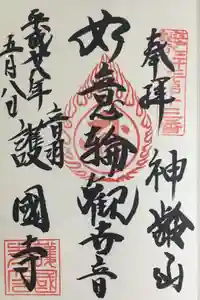 奉拝
神齢山
如意輪觀世音
音羽
護國寺
平成廿八年
五月八日